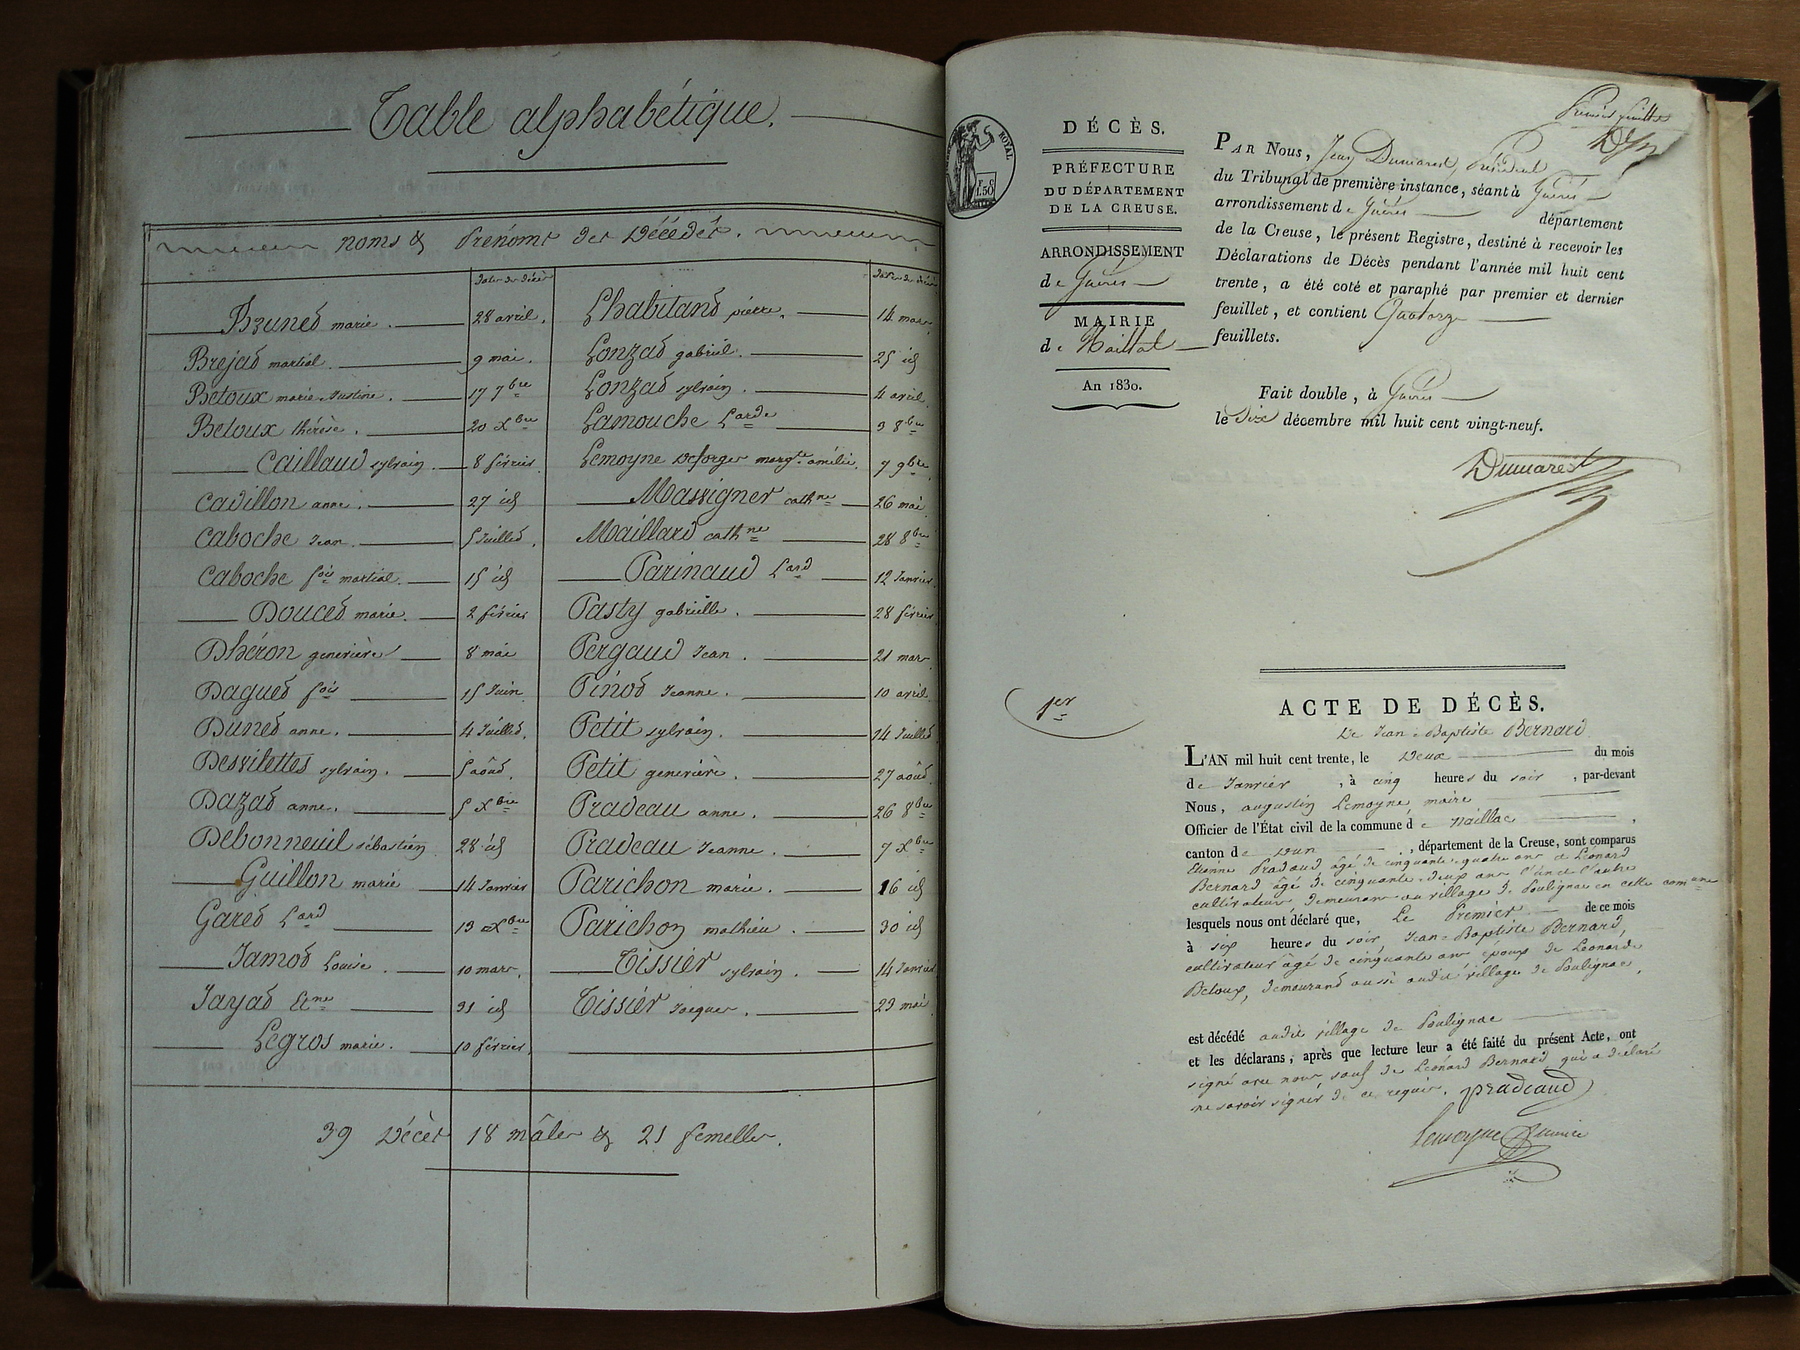 Table alphabétique.
noms & Prénoms des Décédés.
Dates des décès
Brunet marie. 28 avril.
Brejat martial. 9 mai.
Betoux marie Justine. 17 7bre
Betoux thérèse. 20 Xbre
Caillaud sylvain. 8 février.
Cavillon anne. 27 id
Caboche Jean. 5 Juillet.
Caboche fois martial. 15 id
Doucet marie. 2 février
Dhéron geneviève 8 mai
Daguet fois 15 Juin
Dunet anne. 4 Juillet.
Desvilettes sylvain. 5 août.
Dazat anne. 5 Xbre
Debonneuil sébastien 28 id
Guillon marie 14 Janvier
Garet Lard 13 Xbre
Jamot Louise. 10 mars.
Jayat Enne 31 id
Legros marie. 10 février.
Date des décès
Lhabitant pierre. 14 mars
Lonzat gabriel. 25 id
Lonzat sylvain. 4 avril
Lamouche Larde 3 8bre
Lemoyne Deforges margte amélie. 7 9bre
Massigner cathne 26 mai
Maillard cathne 28 8bre
Parinaud Lard 12 Janvier
Pasty gabrielle. 28 février
Pergaud Jean. 21 mars
Pinot Jeanne. 10 avril
Petit sylvain. 14 Juillet
Petit geneviève. 27 août
Pradeau anne. 26 8bre
Pradeau Jeanne. 7 Xbre
Parichon marie. 16 id
Parichon mathieu. 30 id
Tissier sylvain. 14 Janvier
Tissier Jacques. 23 mai
39 Décès 18 mâles & 21 femelles.
ROYAL
F. C.
1.50
DÉCÈS.
PRÉFECTURE
DU DÉPARTEMENT
DE LA CREUSE.
ARRONDISSEMENT
de Guéret
MAIRIE
de Naillat
An 1830.
Premier feuillet
PAR Nous, Jean Dumarest, Président
du Tribunal de première instance, séant à Guéret
arrondissement de Guéret département
de la Creuse, le présent Registre, destiné à recevoir les
Déclarations de Décès pendant l'année mil huit cent
trente, a été coté et paraphé par premier et dernier
feuillet, et contient Quatorze
feuillets.
Fait double, à Guéret
le Six décembre mil huit cent vingt-neuf.
Dumarest
1er
ACTE DE DÉCÈS.
De Jean-Baptiste Bernard
L'AN mil huit cent trente, le Deux du mois
de Janvier, à cinq heures du soir, par-devant
Nous, augustin Lemoyne maire
Officier de l'État civil de la commune de Naillac,
canton de Dun, département de la Creuse, sont comparus
Etienne Pradaud âgé de cinquante-quatre ans et Léonard
Bernard âgé de cinquante-deux ans l'un et l'autre
cultivateurs demeurans au village de Poulignac en cette commune
lesquels nous ont déclaré que, Le Premier de ce mois
à six heures du soir, Jean-Baptiste Bernard,
cultivateur âgé de cinquante ans époux de Léonarde
Betoux, demeurand aussi audit village de Poulignac,
est décédé audit village de Poulignac
et les déclarans, après que lecture leur a été faite du présent Acte, ont
signé avec nous, sauf de Léonard Bernard qui a déclaré
ne savoir signer de ce requis. pradeaud
Lemoyne maire